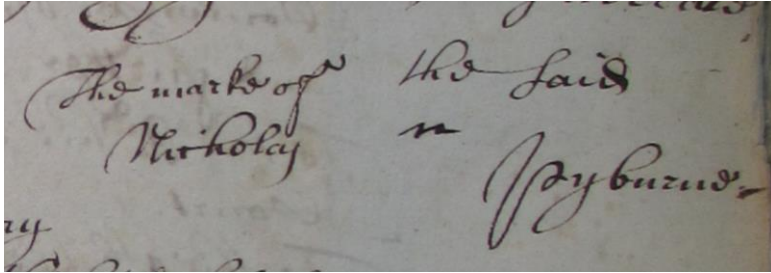 The marke of the said
Nicholas n Pyburne